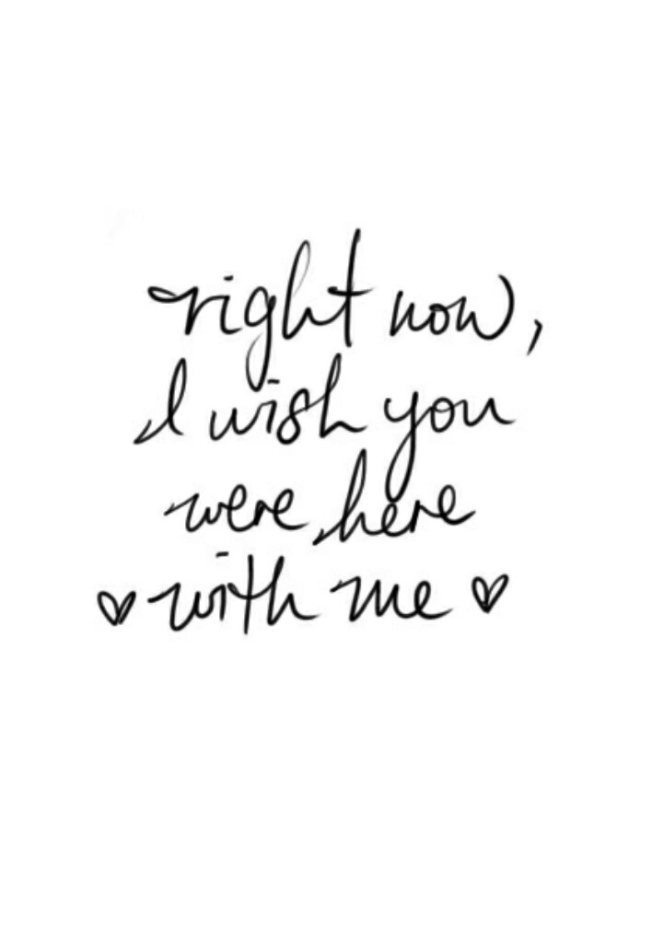 right now,
I wish you
were here
♡ with me ♡